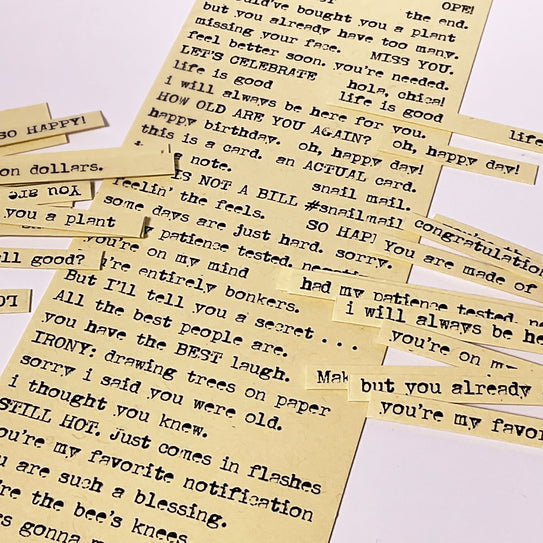 OPE!
bought you a plant the end.
but you already have too many.
missing your face. MISS YOU.
feel better soon. you're needed.
LET'S CELEBRATE hola, chica!
life is good life is good
i will always be here for you.
HOW OLD ARE YOU AGAIN? oh, happy day!
happy birthday. oh, happy day!
this is a card. an ACTUAL card.
note. snail mail.
IS NOT A BILL #snailmail
feelin' the feels. SO HAP
some days are just hard. sorry.
patience tested.
you're on my mind
're entirely bonkers.
But I'll tell you a secret . . .
All the best people are.
you have the BEST laugh.
IRONY: drawing trees on paper
sorry i said you were old.
i thought you knew.
STILL HOT. Just comes in flashes
you're my favorite notification
you are such a blessing.
're the bee's knees
gonna
SO HAPPY!
on dollars.
You are
you a plant
ll good?
LO
life
congratulation
You are made of
had my patience tested.
i will always be he
you're on my
Mak
but you already
you're my favor